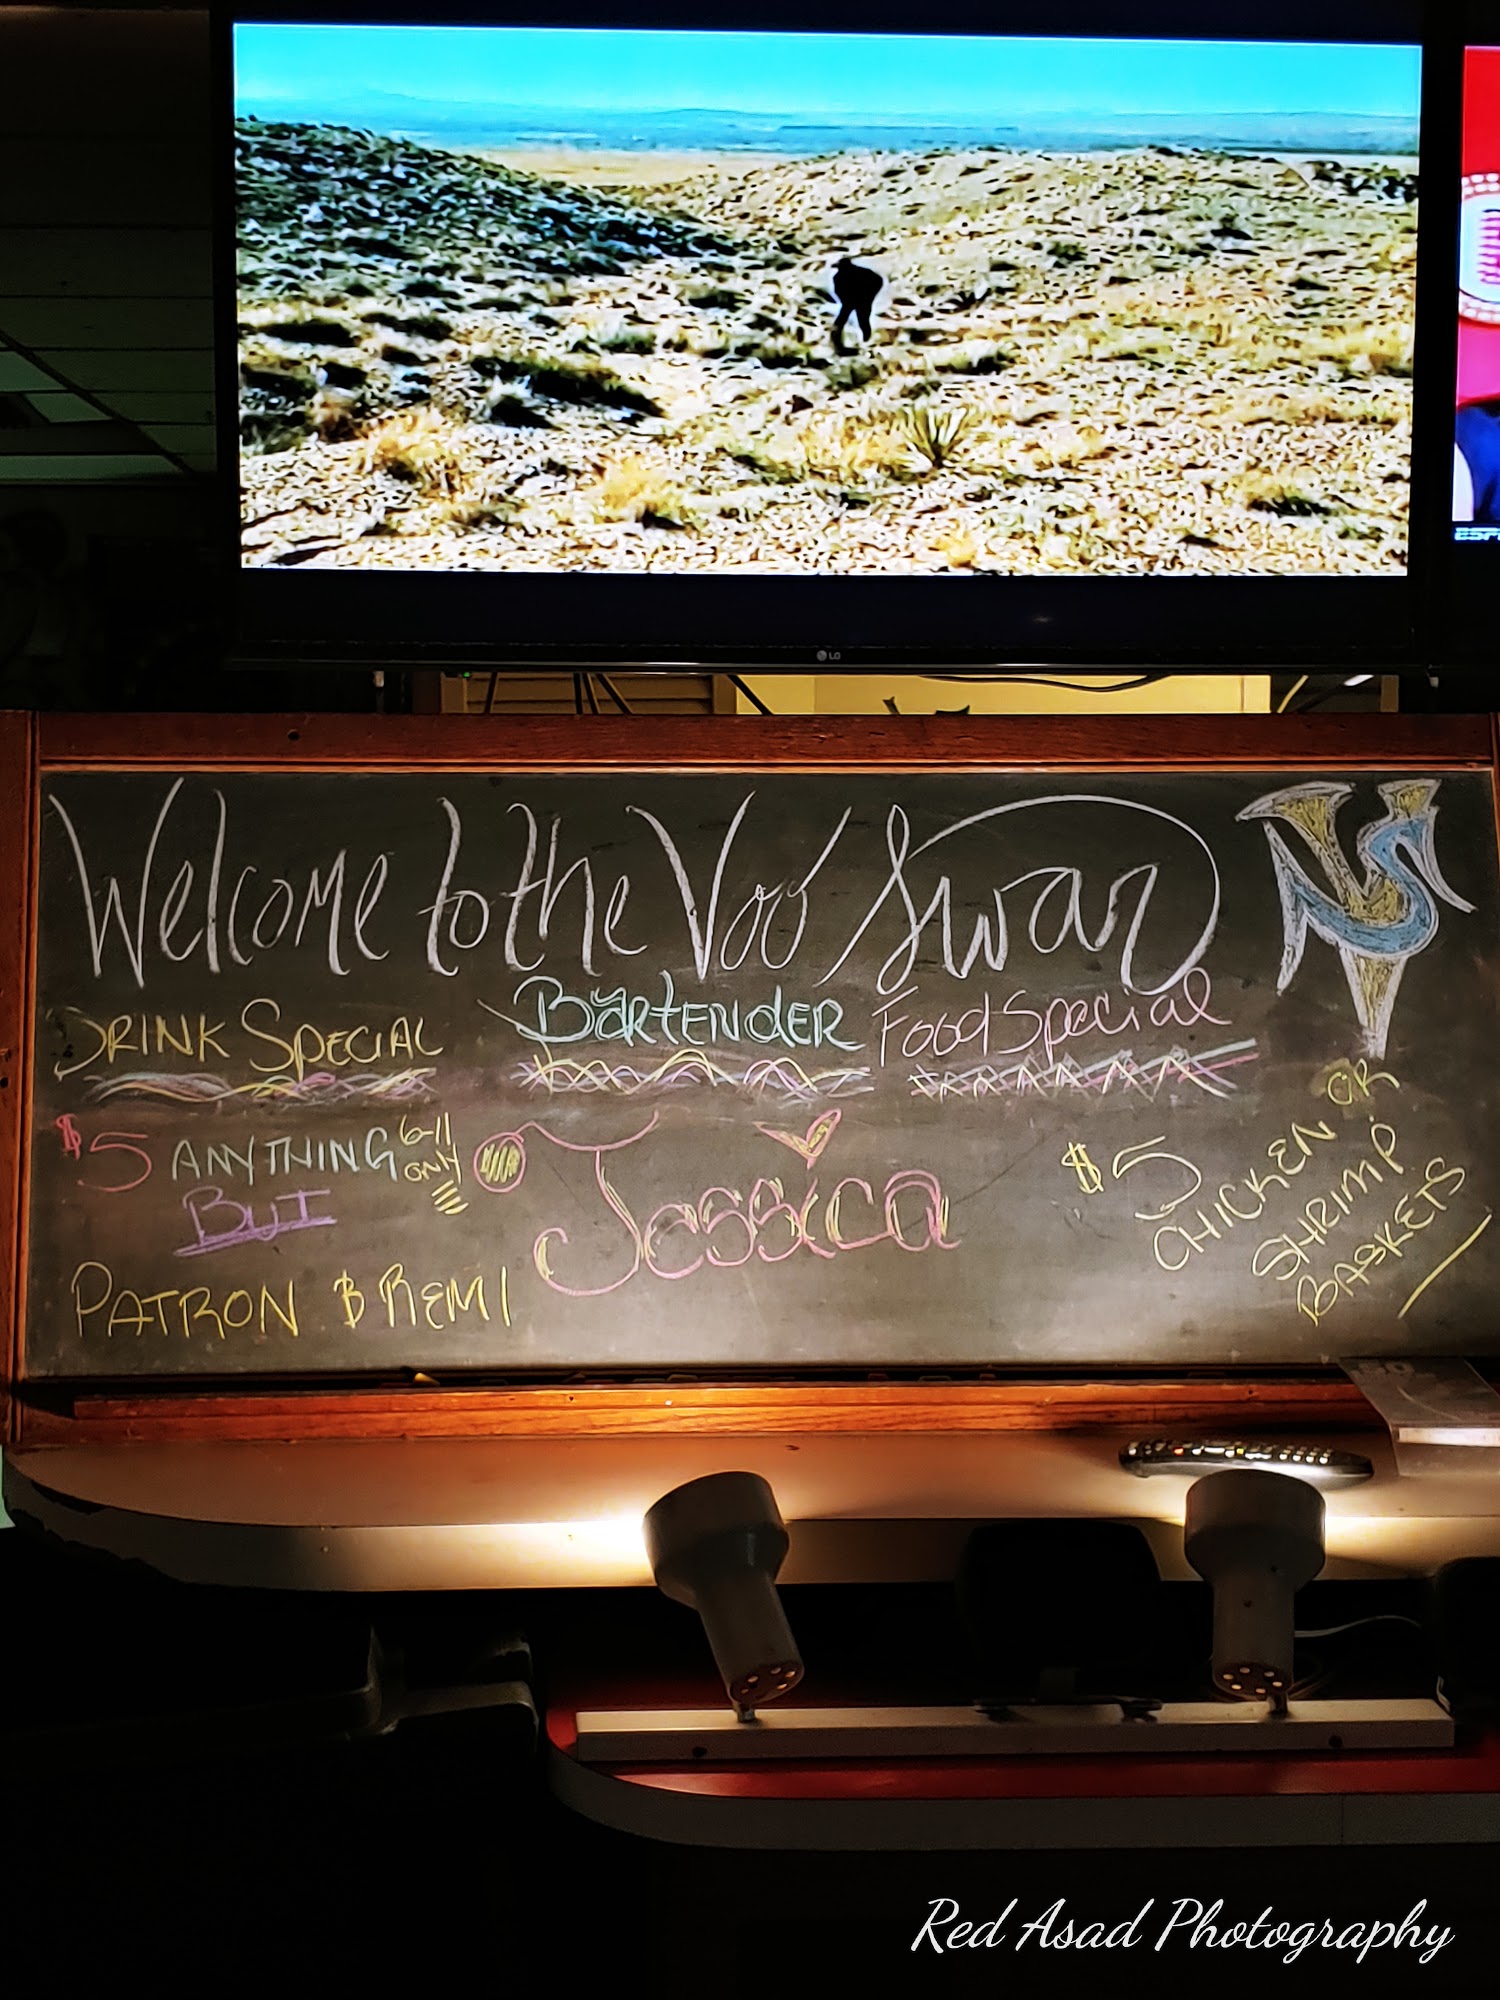 ESP
LG
Welcome to the Voo Swar
VS
DRINK SPECIAL
BARTENDER
Food Special
$5 ANYTHING 6-11 ONLY
BUT
PATRON & REMI
Jessica
$5 CHICKEN OR
SHRIMP
BASKETS
Red Asad Photography